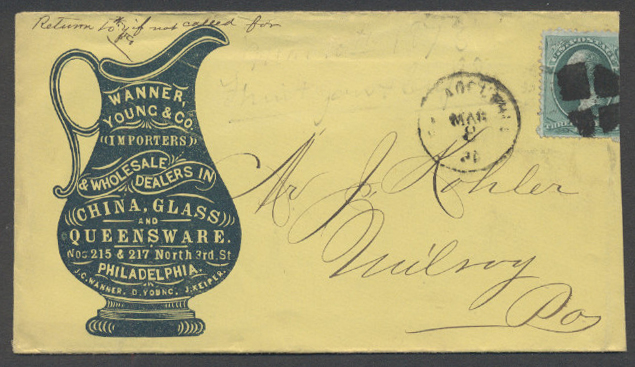 Return to if not called for
WANNER,
YOUNG & CO.
IMPORTERS
& WHOLESALE
DEALERS IN
CHINA, GLASS
AND
QUEENSWARE.
Nos 215 & 217 North 3rd. St
PHILADELPHIA.
J.C. WANNER. D. YOUNG. J. KEIPER.
MAR
Mr J. Kohler
Milroy
Pa